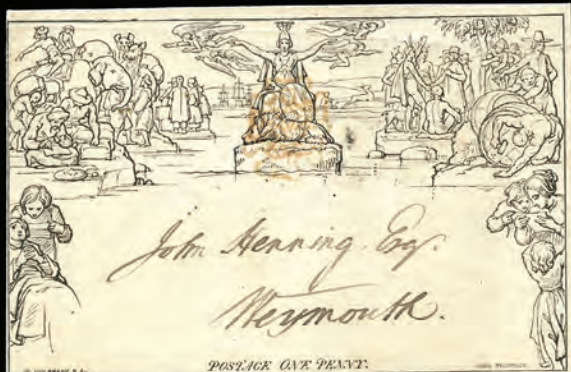 John Henning Esqr.
Weymouth.
POSTAGE ONE PENNY.